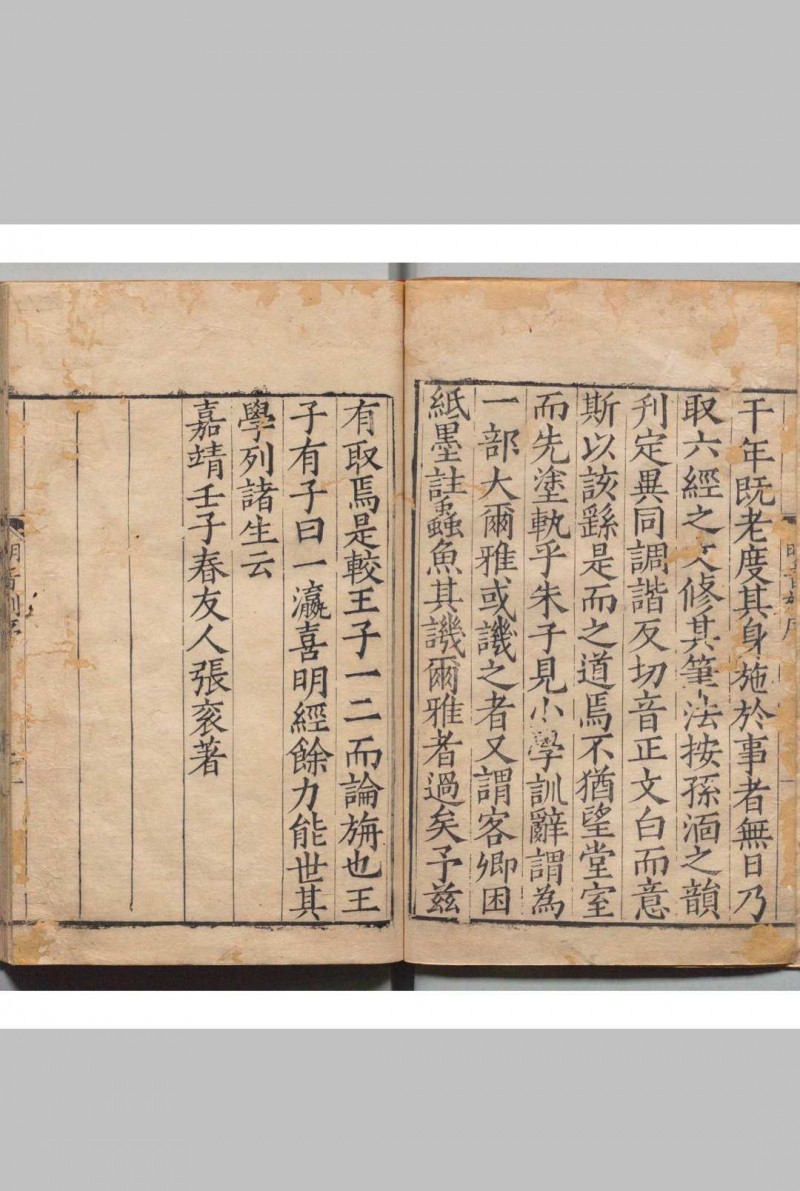 千年既老度其身施於事者無日乃
取六經之文修其筆法按孫愐之韻
刋定異同調諧反切音正文白而意
斯以該繇是而之道焉不猶望堂室
而先塗軌乎朱子見小學訓辭謂為
一部大爾雅或譏之者又謂客卿困
紙墨註蟲魚其譏爾雅者過矣予兹
有取焉是較王子一二而論旃也王
子有子曰一瀛喜明經餘力能世其
學列諸生云
嘉靖壬子春友人張衮著